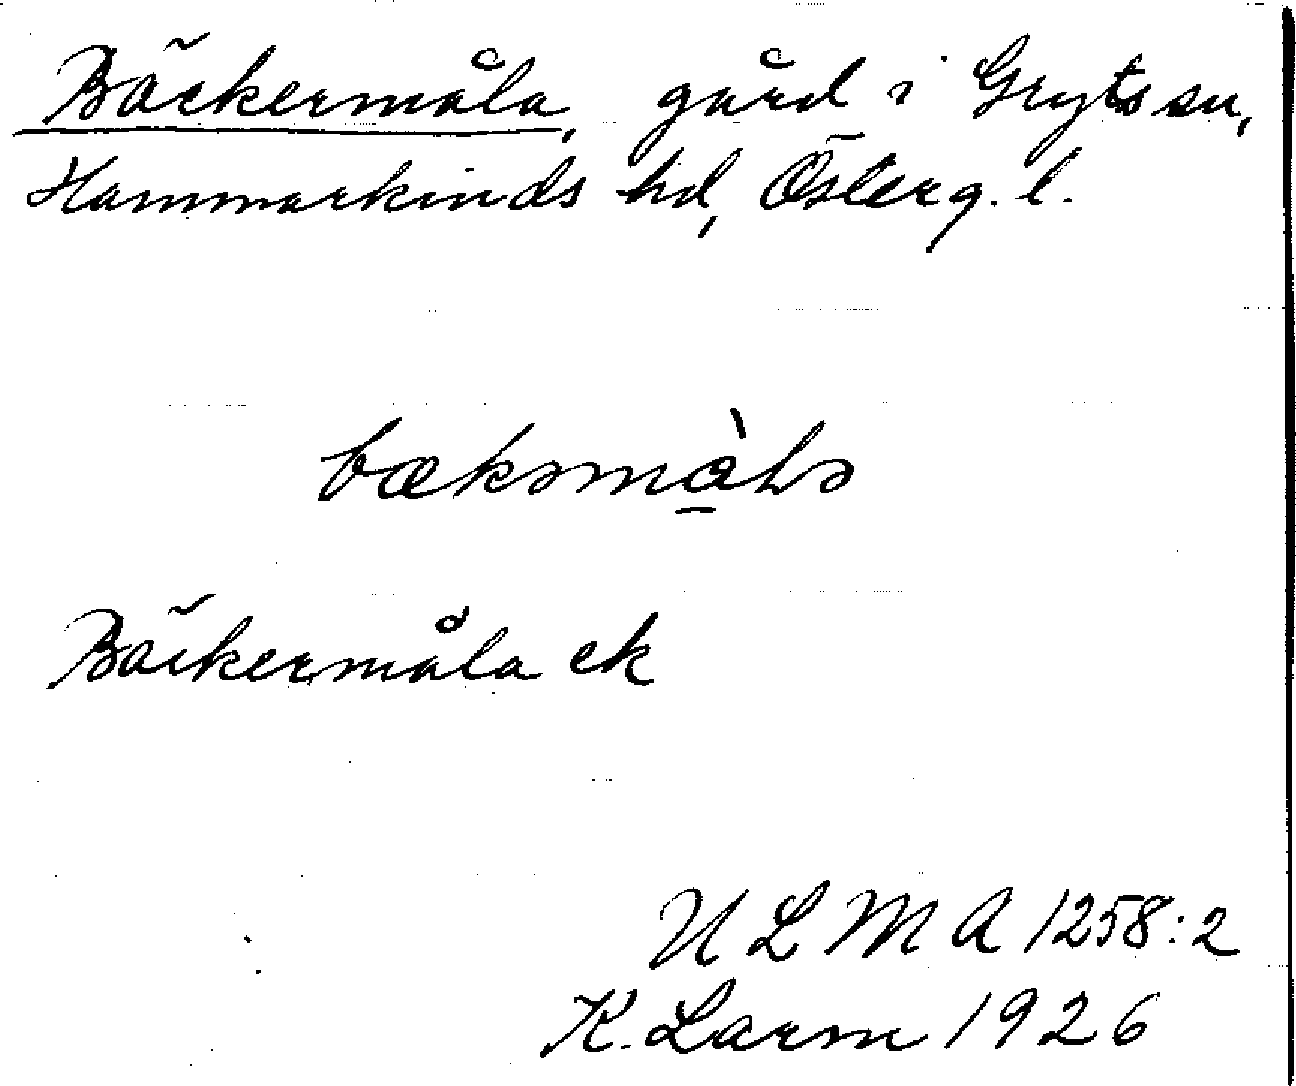 Bäckermåla, gård i Gryts sn,
Hammarkinds hd, Österg. l.
bækəmàlə
Bäckermåla ek
ULMA 1258:2
K. Larm 1926